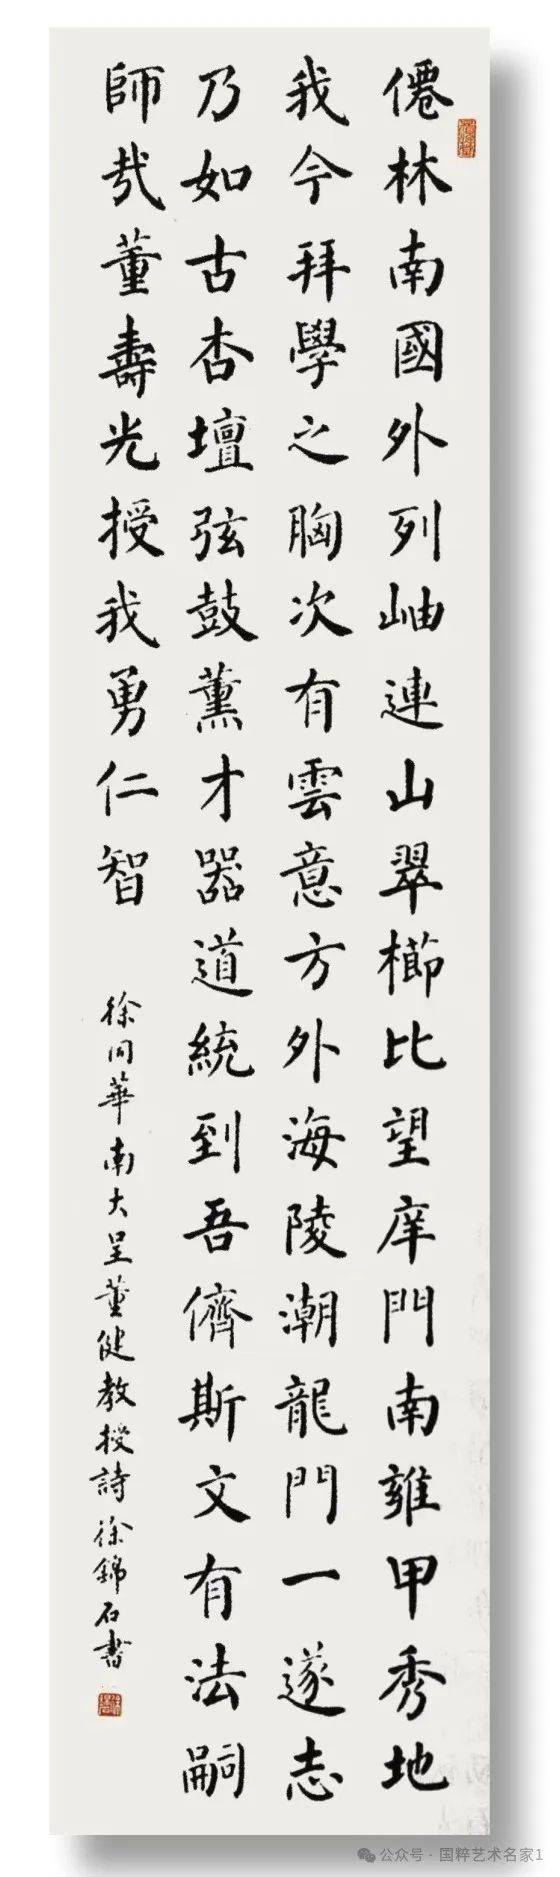 僊林南國外列岫連山翠櫛比望庠門南雍甲秀地
我今拜學之胸次有雲意方外海陵潮龍門一遂志
乃如古杏壇弦鼓薰才器道統到吾儕斯文有法嗣
師哉董壽光授我勇仁智
徐同華南大呈董健教授詩 徐錦石書
公众号·国粹艺术名家1